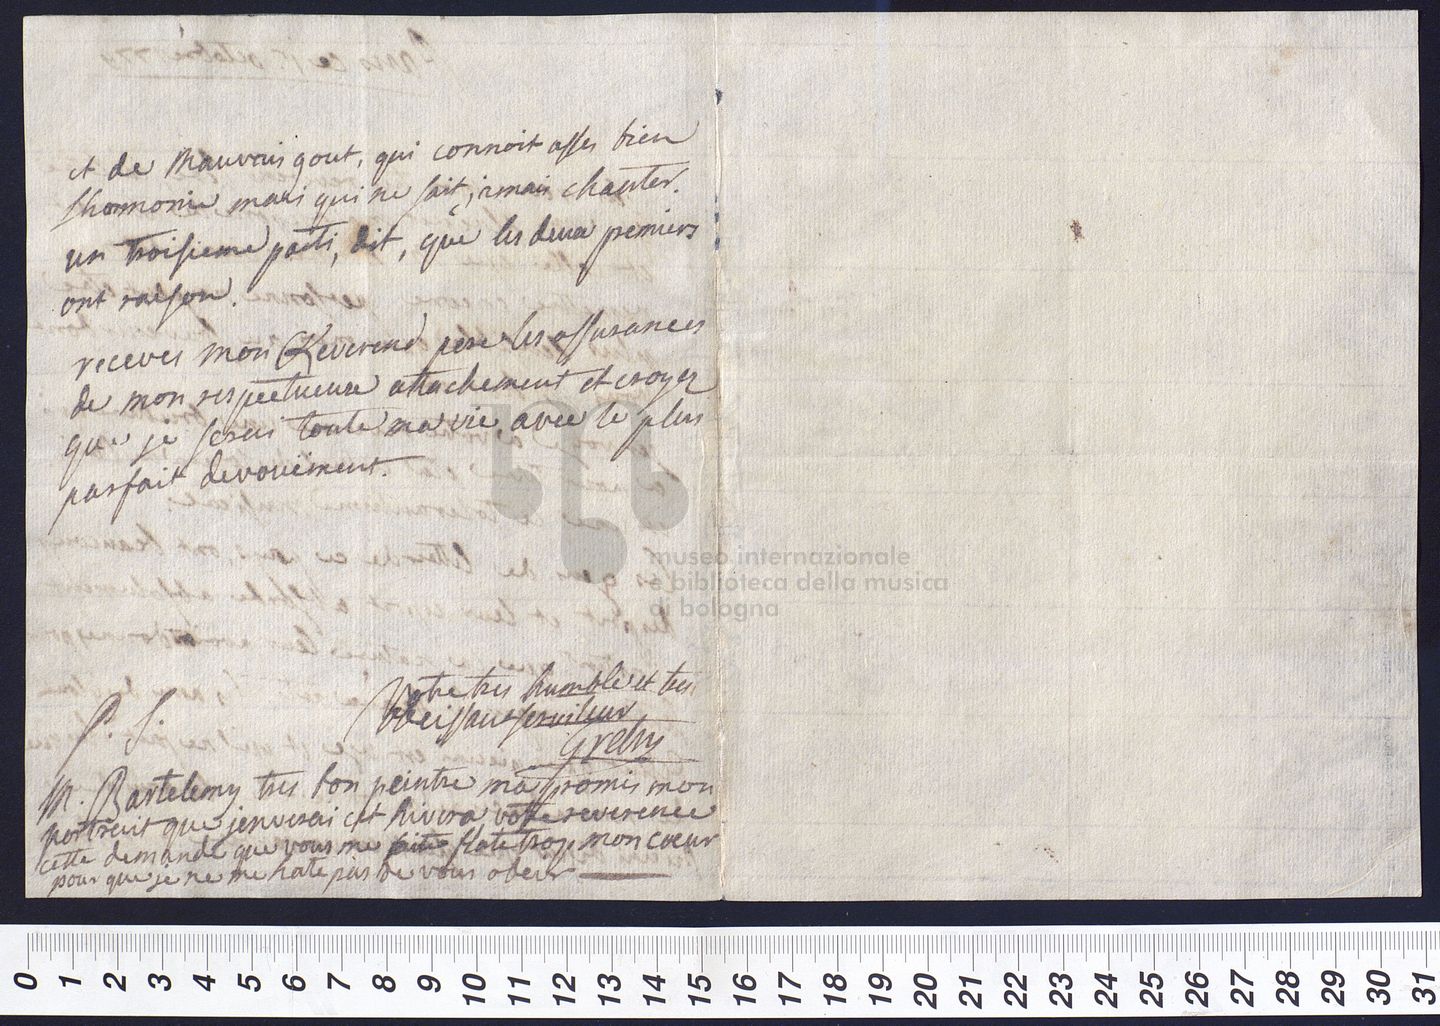 et de Mauvais gout, qui connoit assés bien
lharmonie mais qui ne sait jamais chanter.
un troisieme parti, dit, que les deux premiers
ont raison.
recevés mon Reverend pere les assurances
de mon respectueux attachement et croyez
que je serai toute ma vie avec le plus
parfait devouëment.
Votre tres humble et tres
obeissant serviteur
Gretry
P. S.
M. Bartelemy tres bon peintre ma promis mon
portrait que j'enverai cet hivera votre reverence
cette demande que vous me faite flate trop mon cœur
pour que je ne me hate pas de vous obeir
museo internazionale
e biblioteca della musica
di bologna
0 1 2 3 4 5 6 7 8 9 10 11 12 13 14 15 16 17 18 19 20 21 22 23 24 25 26 27 28 29 30 31